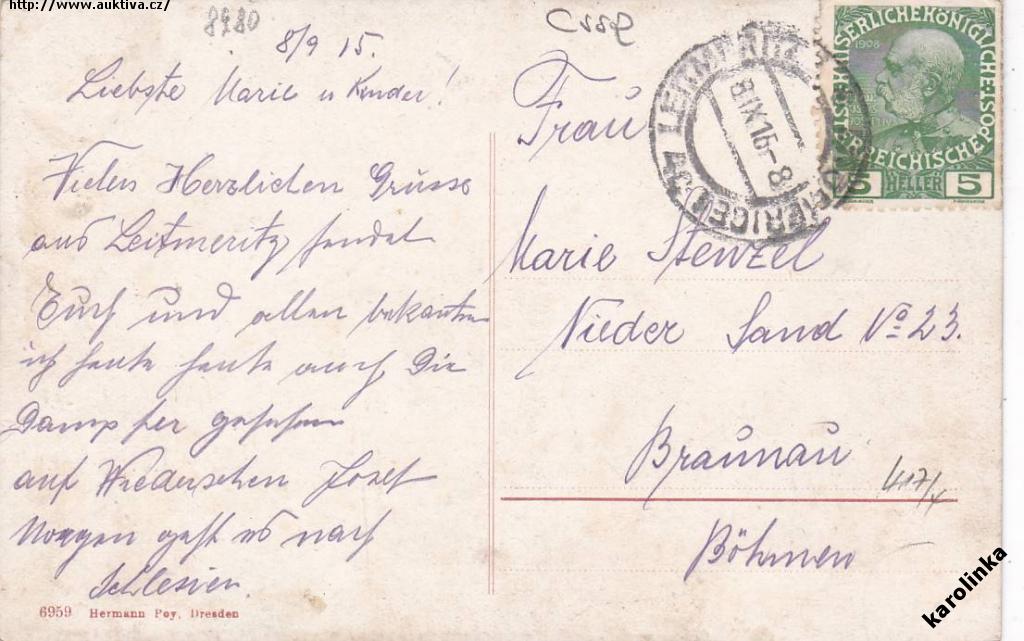 http://www.auktiva.cz/
8980
8/9 15.
Liebste Marie u Kinder!
Vielen Herzlichen Grusse
aus Leitmeritz sendet
Euch und allen bekanten
ich heute heute auch Die
Dampfer gesehen
auf Wiedersehen Josef
Morgen geht es nach
Schlesien.
6959 Hermann Poy, Dresden
Frau
Marie Stenzel
Nieder Sand No 23.
Braunau
Böhmen
417/x
8 IX 15-8
KAISERLICHE KÖNIGLICHE
1908
ÖSTERREICHISCHE POST
5 HELLER 5
karolinka